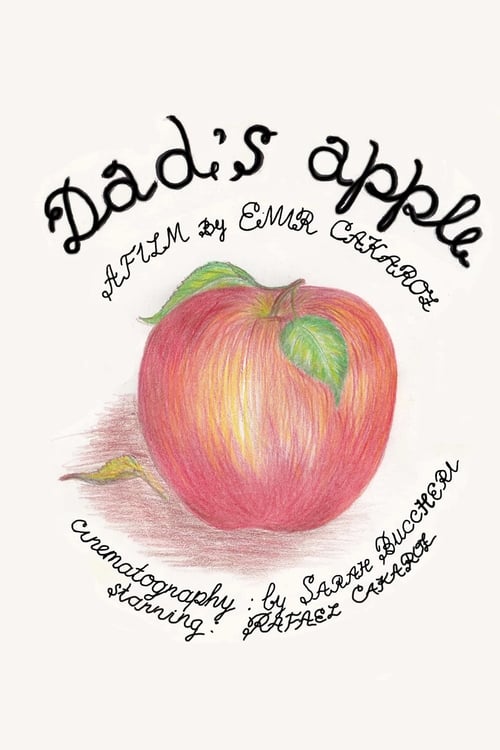 Dad's apple
A FILM by EMIR CAKAROZ
cinematography: by SARAH BUCCHERI
starring: RAFAEL CAKAROZ